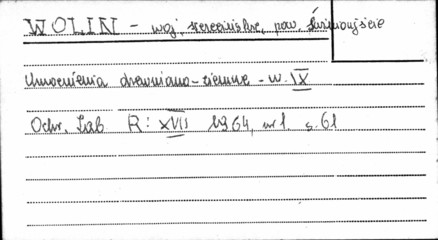 WOLIN - woj. szczecińskie, pow. Świnoujście
Umocnienia drewniano-ziemne - w. IX
Ochr. Zab. R: XVII 1964, nr 1. s. 61